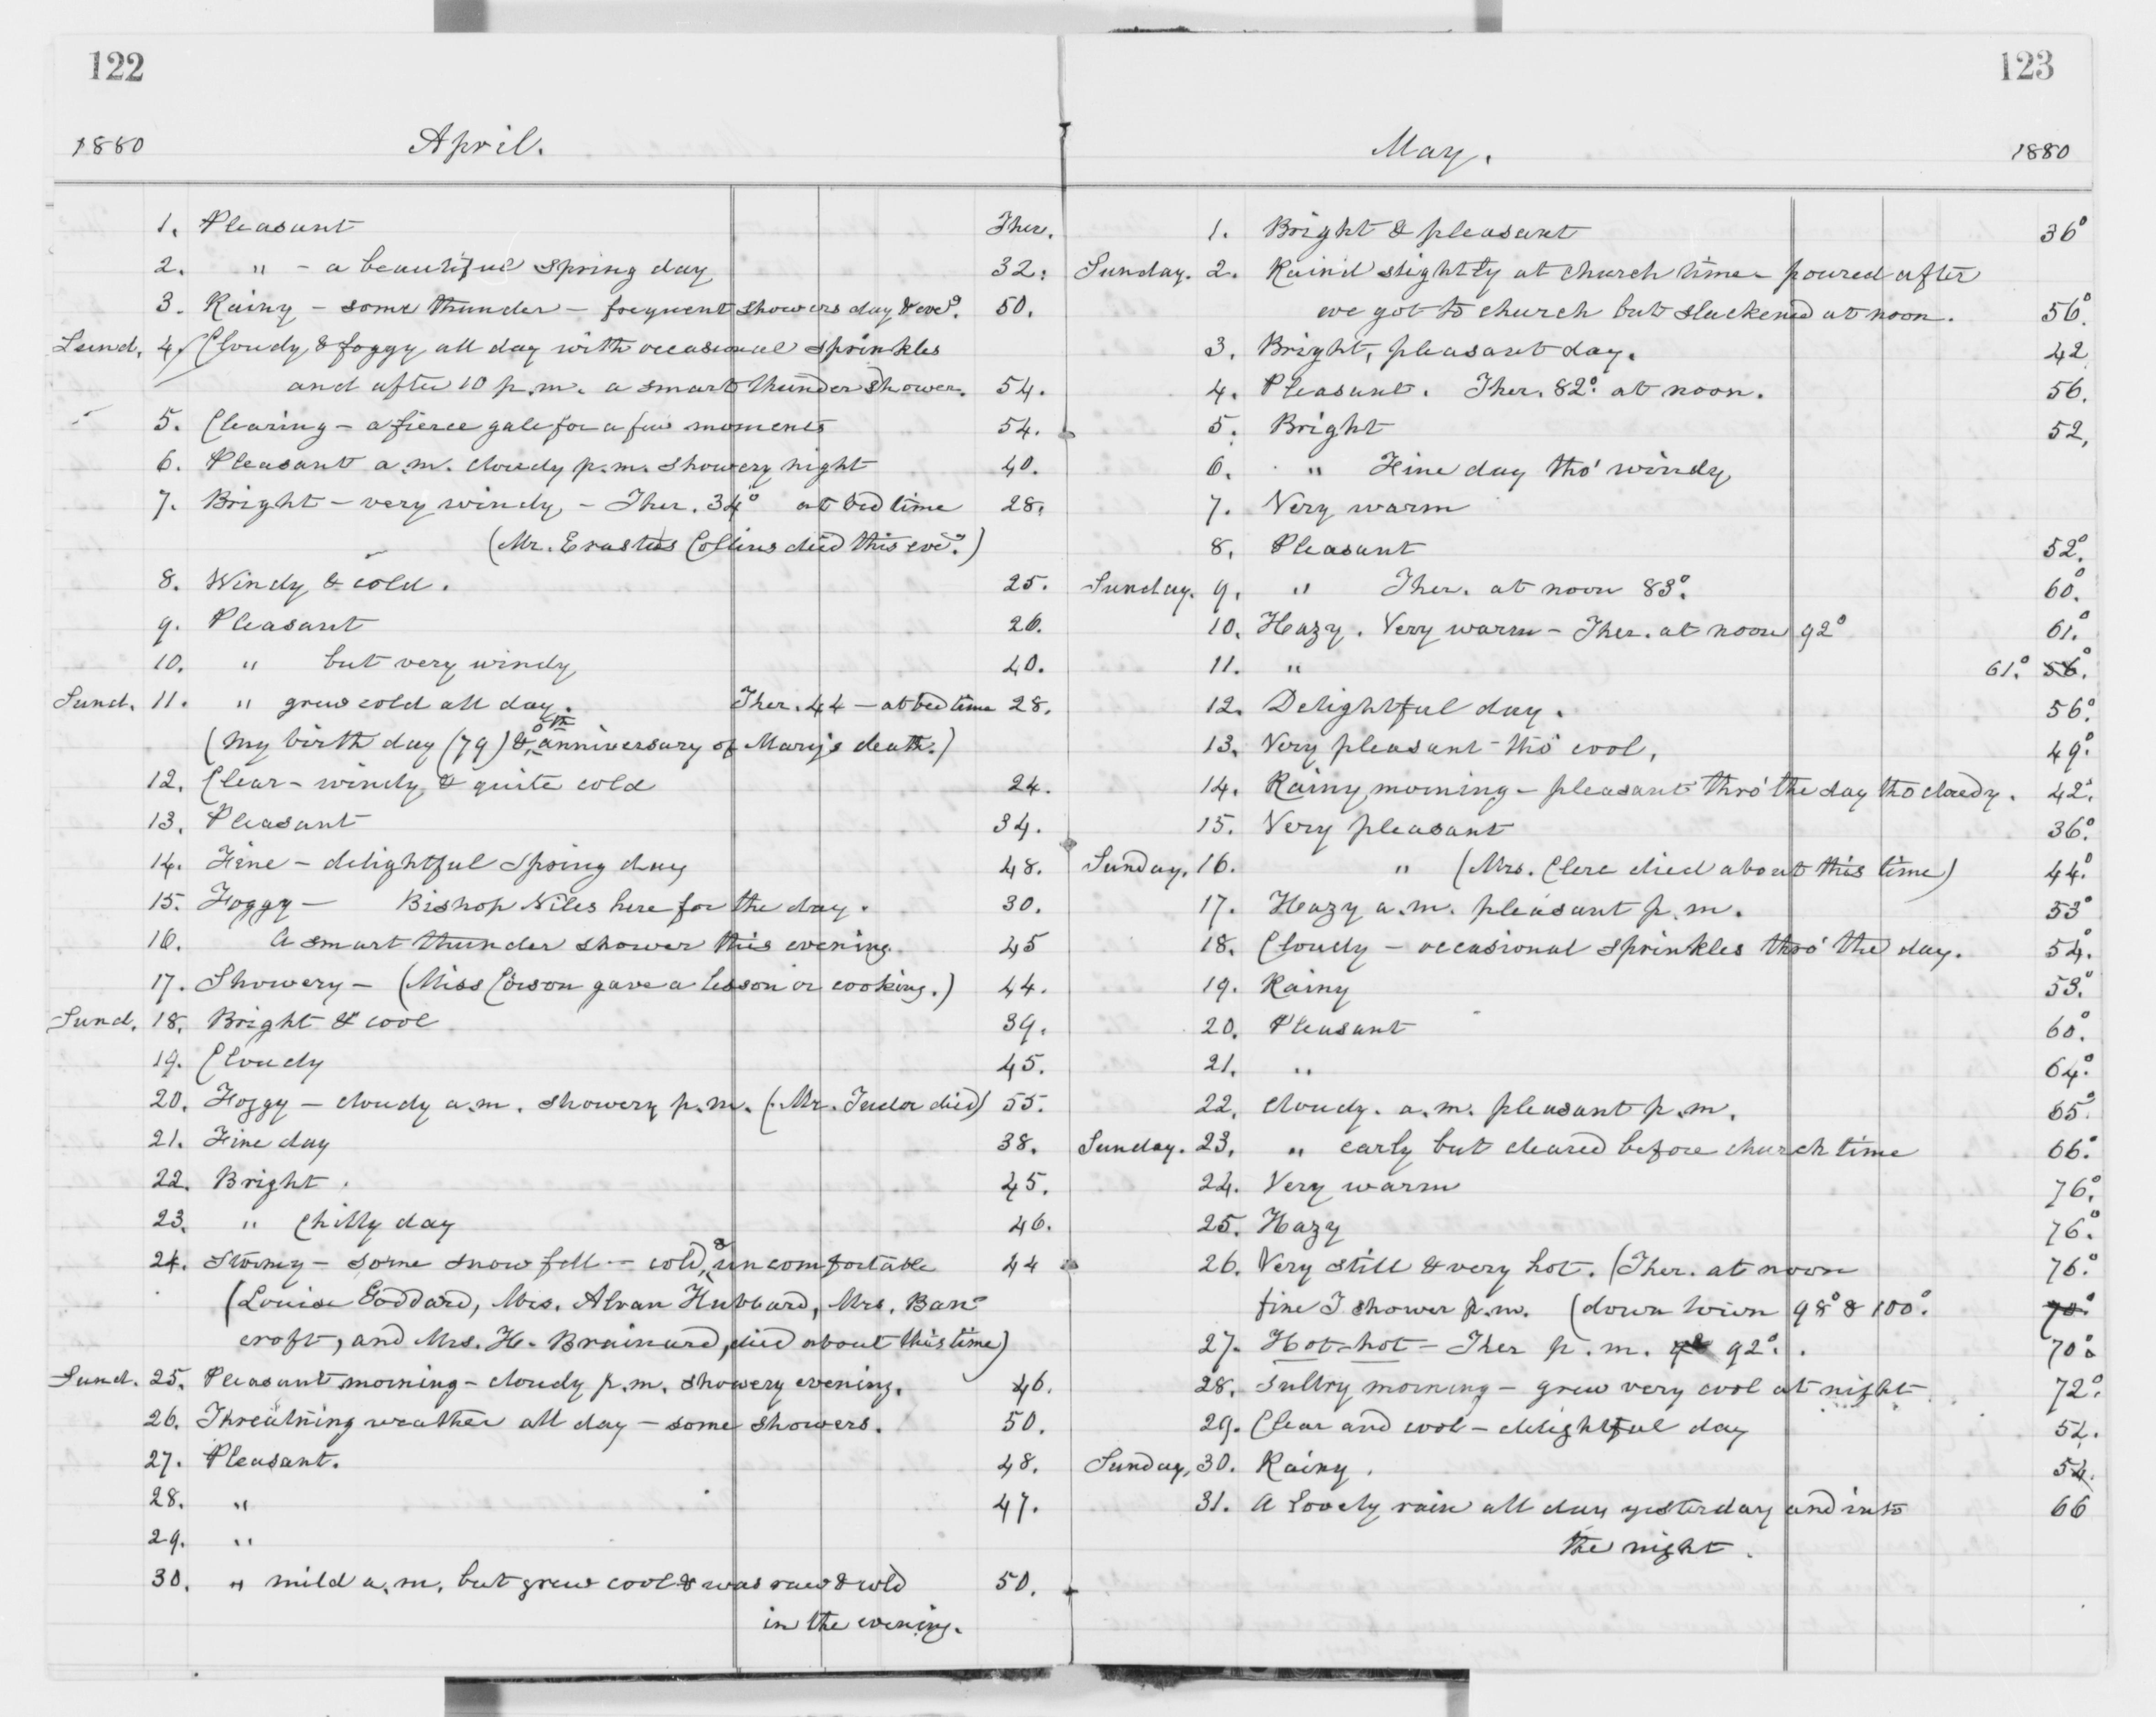 122
1880 April.
1. Pleasant Ther.
2. " - a beautiful spring day 32.
3. Rainy - some thunder - frequent showers day & eve.g 50.
Sund. 4. Cloudy & foggy all day with occasional sprinkles
and after 10 p.m. a smart thunder shower. 54.
5. Clearing - a fierce gale for a few moments 54.
6. Pleasant a.m. cloudy p.m. showery night 40.
7. Bright - very windy - Ther. 34° at bed time 28.
(Mr. Erastus Collins died this eve.g)
8. Windy & cold. 25.
9. Pleasant 26.
10. " but very windy 40.
Sund. 11. " grew cold all day. Ther. 44 - at bed time 28.
(my birth day (79) & 8th anniversary of Mary's death.)
12. Clear - windy & quite cold 24.
13. Pleasant 34.
14. Fine - delightful spring day 48.
15. Foggy - Bishop Niles here for the day. 30.
16. A smart thunder shower this evening. 45
17. Showery - (Miss Corson gave a lesson in cooking.) 44.
Sund. 18. Bright & cool 39.
19. Cloudy 45.
20. Foggy - cloudy a.m. showery p.m. (Mr. Tudor died) 55.
21. Fine day 38.
22. Bright. 45.
23. " Chilly day 46.
24. Stormy - some snow fell - cold, & uncomfortable 44
(Louise Goddard, Mrs. Alvan Hubbard, Mrs. Ban-
croft, and Mrs. H. Brainard, died about this time)
Sund. 25. Pleasant morning - cloudy p.m. showery evening. 46.
26. Threatning weather all day - some showers. 50.
27. Pleasant. 48.
28. " 47.
29. "
30. " mild a.m. but grew cool & was raw & cold 50.
in the evening.
123
May. 1880
1. Bright & pleasant 36°
Sunday. 2. Rain'd slightly at church time - poured after
we got to church but slackened at noon. 56°.
3. Bright, pleasant day. 42
4. Pleasant. Ther. 82° at noon. 56.
5. Bright 52.
6. " Fine day tho' windy
7. Very warm
8. Pleasant 52°.
Sunday. 9. " Ther. at noon 83°. 60°.
10. Hazy. Very warm - Ther. at noon 92° 61°.
11. " 61°. 56°.
12. Delightful day. 56°.
13. Very pleasant - tho' cool. 49°.
14. Rainy morning - pleasant thro' the day tho cloudy. 42°.
15. Very pleasant 36°.
Sunday. 16. " (Mrs. Clerc died about this time) 44°.
17. Hazy a.m. pleasant p.m. 53°
18. Cloudy - occasional sprinkles thro' the day. 54°.
19. Rainy 53°.
20. Pleasant 60°.
21. " 64°.
22. Cloudy. a.m. pleasant p.m. 65°.
Sunday. 23. " early but cleared before church time 66°.
24. Very warm 76°.
25. Hazy 76°.
26. Very still & very hot. (Ther. at noon 76°.
fine T shower p.m. (down town 98° & 100°. 70°
27. Hot - hot - Ther p.m. 92°. 70°.
28. Sultry morning - grew very cool at night 72°.
29. Clear and cool - delightful day 52.
Sunday, 30. Rainy. 54.
31. A lovely rain all day yesterday and into 66
the night.